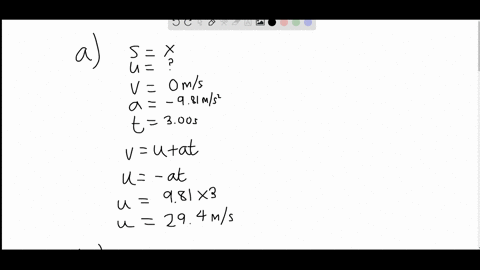 a)
S = x
u = ?
v = 0 m/s
a = -9.81 m/s²
t = 3.00s
v = u + at
u = -at
u = 9.81 × 3
u = 29.4 m/s